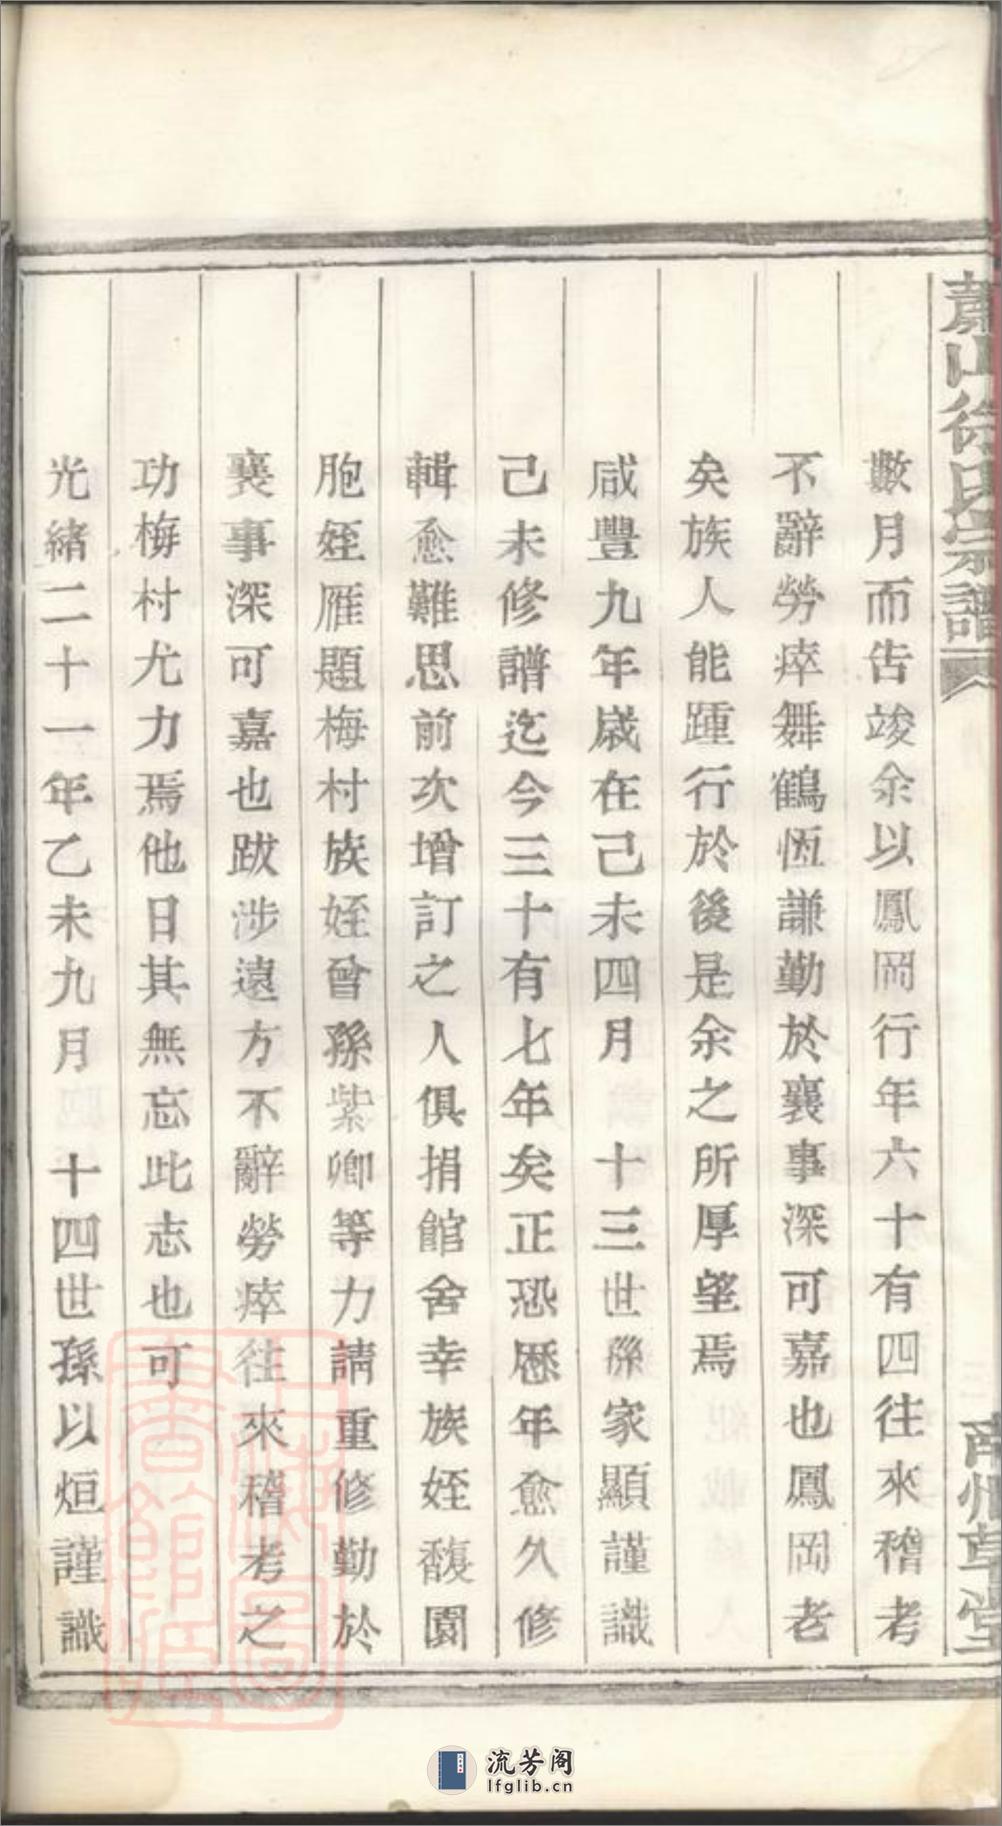 蕭山徐氏宗譜
南州草堂
數月而告竣余以鳳岡行年六十有四往來稽考
不辭勞瘁舞鶴恆謙勤於襄事深可嘉也鳳岡老
矣族人能踵行於後是余之所厚望焉
咸豐九年歲在己未四月 十三世孫家顯謹識
己未修譜迄今三十有七年矣正恐歷年愈久修
輯愈難思前次增訂之人俱捐館舍幸族姪馥園
胞姪雁題梅村族姪曾孫紫卿等力請重修勤於
襄事深可嘉也跋涉遠方不辭勞瘁往來稽考之
功梅村尤力焉他日其無忘此志也可
光緒二十一年乙未九月 十四世孫以烜謹識
流芳阁
lfglib.cn